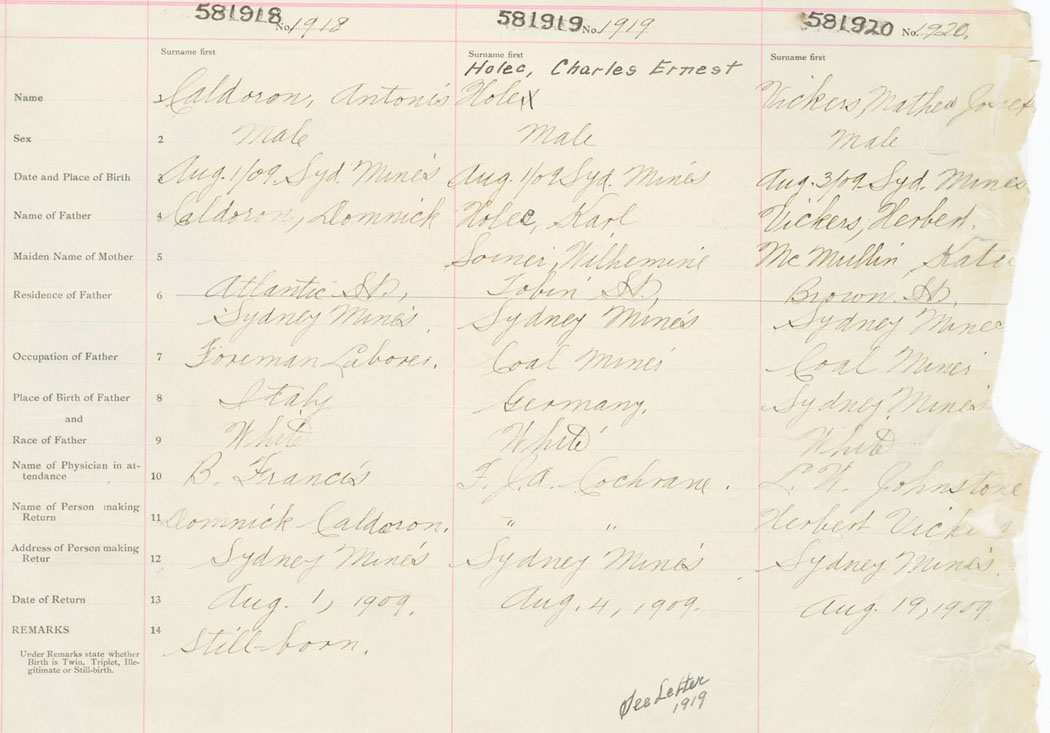 581918 No. 1918 581919 No. 1919 581920 No. 1920.
Surname first Surname first Surname first
Holec, Charles Ernest
Name 1 Caldoron, Antonis Hole Vickers, Mathew
Sex 2 Male Male Male
Date and Place of Birth 3 Aug. 1/09 Syd. Mines Aug. 1/09 Syd. Mines Aug. 3/09 Syd. Mines
Name of Father 4 Caldoron, Domnick Holec, Karl Vickers, Herbert.
Maiden Name of Mother 5 Wilhemine McMullin, Katie
Residence of Father 6 Atlantic St., Tobin St., Brown St.,
Sydney Mines. Sydney Mines Sydney Mines
Occupation of Father 7 Foreman Laborer. Coal Mines Coal Mines
Place of Birth of Father 8 Italy Germany. Sydney Mines
and
Race of Father 9 White White White
Name of Physician in at-
tendance 10 B. Francis F. J. A. Cochrane. L. W. Johnstone
Name of Person making
Return 11 Domnick Caldoron. " " Herbert Vickers
Address of Person making
Retur 12 Sydney Mines Sydney Mines Sydney Mines.
Date of Return 13 Aug. 1, 1909. Aug. 4, 1909. Aug. 19, 1909
REMARKS 14 Still-born.
Under Remarks state whether
Birth is Twin, Triplet, Ille-
gitimate or Still-birth.
See Letter
1919